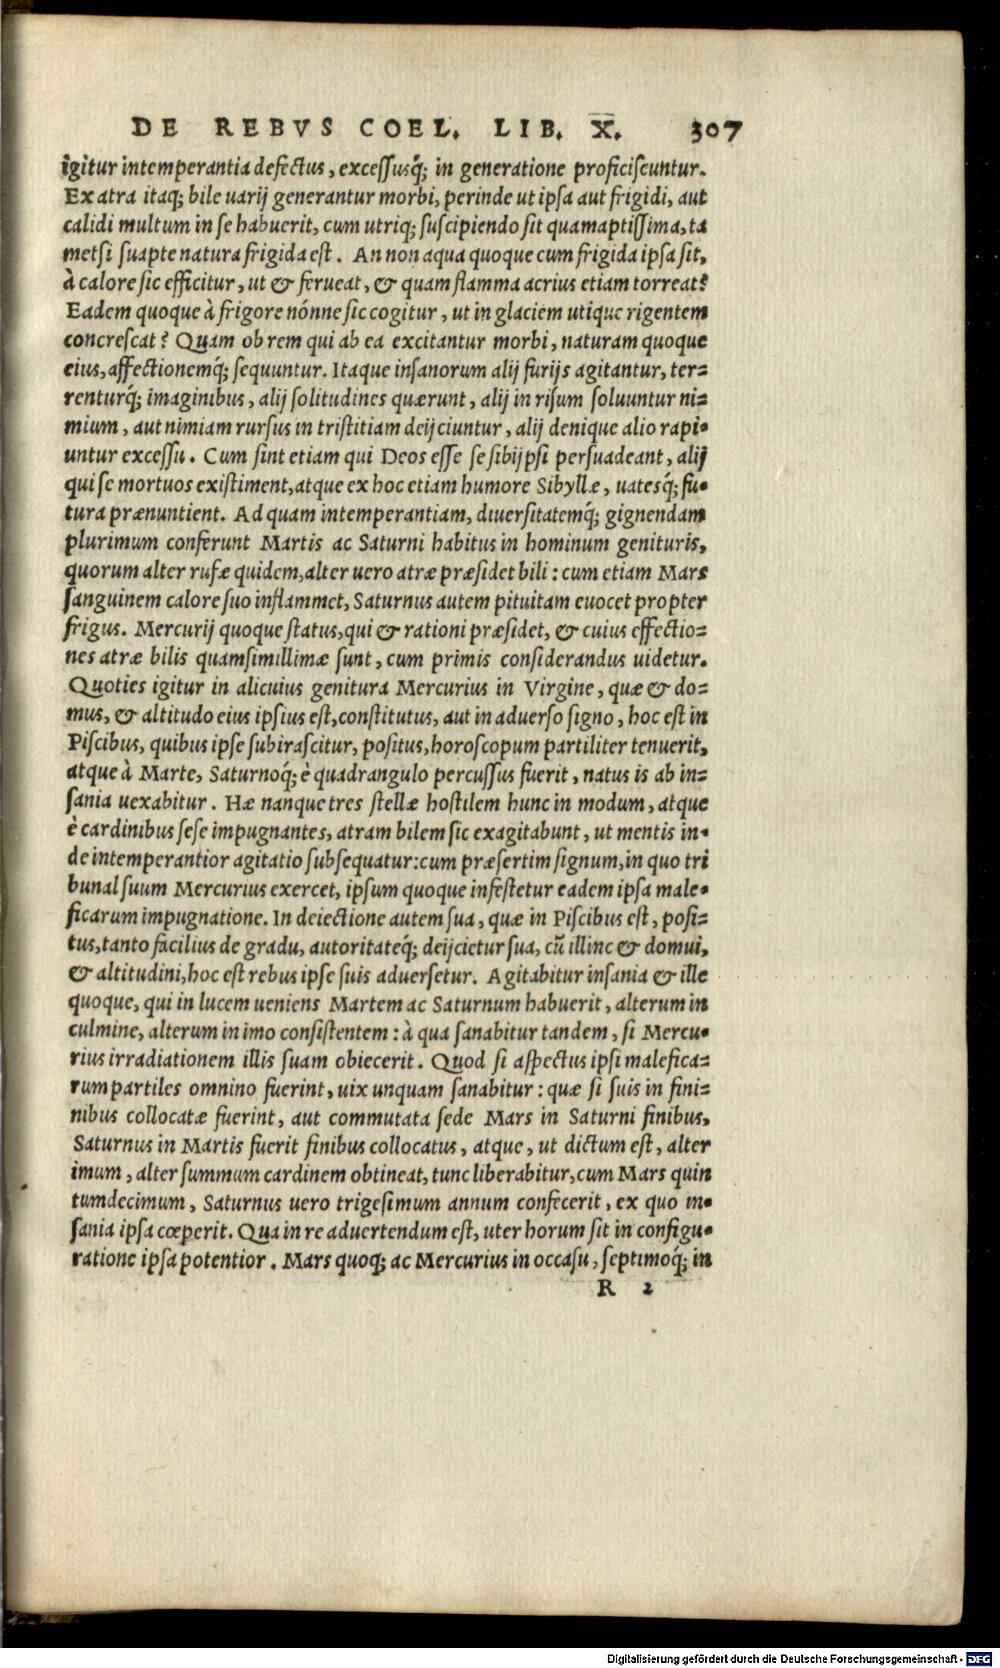 DE REBVS COEL. LIB. X. 307
igitur intemperantia defectus, excessusq́; in generatione proficiscuntur.
Ex atra itaq; bile uarij generantur morbi, perinde ut ipsa aut frigidi, aut
calidi multum in se habuerit, cum utriq; suscipiendo sit quamaptissima, ta
metsi suapte natura frigida est. An non aqua quoque cum frigida ipsa sit,
à calore sic efficitur, ut & ferueat, & quam flamma acrius etiam torreat?
Eadem quoque à frigore nónne sic cogitur, ut in glaciem utique rigentem
concrescat? Quam ob rem qui ab ea excitantur morbi, naturam quoque
eius, affectionemq́; sequuntur. Itaque insanorum alij furijs agitantur, ter-
renturq́; imaginibus, alij solitudines quærunt, alij in risum soluuntur ni-
mium, aut nimiam rursus in tristitiam deijciuntur, alij denique alio rapi-
untur excessu. Cum sint etiam qui Deos esse se sibijpsi persuadeant, alij
qui se mortuos existiment, atque ex hoc etiam humore Sibyllæ, uatesq́; fu-
tura prænuntient. Ad quam intemperantiam, diuersitatemq́; gignendam
plurimum conferunt Martis ac Saturni habitus in hominum genituris,
quorum alter rufæ quidem, alter uero atræ præsidet bili: cum etiam Mars
sanguinem calore suo inflammet, Saturnus autem pituitam euocet propter
frigus. Mercurij quoque status, qui & rationi præsidet, & cuius effectio-
nes atræ bilis quamsimillimæ sunt, cum primis considerandus uidetur.
Quoties igitur in alicuius genitura Mercurius in Virgine, quæ & do-
mus, & altitudo eius ipsius est, constitutus, aut in aduerso signo, hoc est in
Piscibus, quibus ipse subirascitur, positus, horoscopum partiliter tenuerit,
atque à Marte, Saturnoq́; è quadrangulo percussus fuerit, natus is ab in-
sania uexabitur. Hæ nanque tres stellæ hostilem hunc in modum, atque
è cardinibus sese impugnantes, atram bilem sic exagitabunt, ut mentis in-
de intemperantior agitatio subsequatur: cum præsertim signum, in quo tri
bunal suum Mercurius exercet, ipsum quoque infestetur eadem ipsa male-
ficarum impugnatione. In deiectione autem sua, quæ in Piscibus est, posi-
tus, tanto facilius de gradu, autoritateq́; deijcietur sua, cũ illinc & domui,
& altitudini, hoc est rebus ipse suis aduersetur. Agitabitur insania & ille
quoque, qui in lucem ueniens Martem ac Saturnum habuerit, alterum in
culmine, alterum in imo consistentem: à qua sanabitur tandem, si Mercu-
rius irradiationem illis suam obiecerit. Quod si aspectus ipsi malefica-
rum partiles omnino fuerint, uix unquam sanabitur: quæ si suis in fini-
nibus collocatæ fuerint, aut commutata sede Mars in Saturni finibus,
Saturnus in Martis fuerit finibus collocatus, atque, ut dictum est, alter
imum, alter summum cardinem obtineat, tunc liberabitur, cum Mars quin
tumdecimum, Saturnus uero trigesimum annum confecerit, ex quo in-
sania ipsa cœperit. Qua in re aduertendum est, uter horum sit in configu-
ratione ipsa potentior. Mars quoq; ac Mercurius in occasu, septimoq́; in
R 2
Digitalisierung gefördert durch die Deutsche Forschungsgemeinschaft - DFG